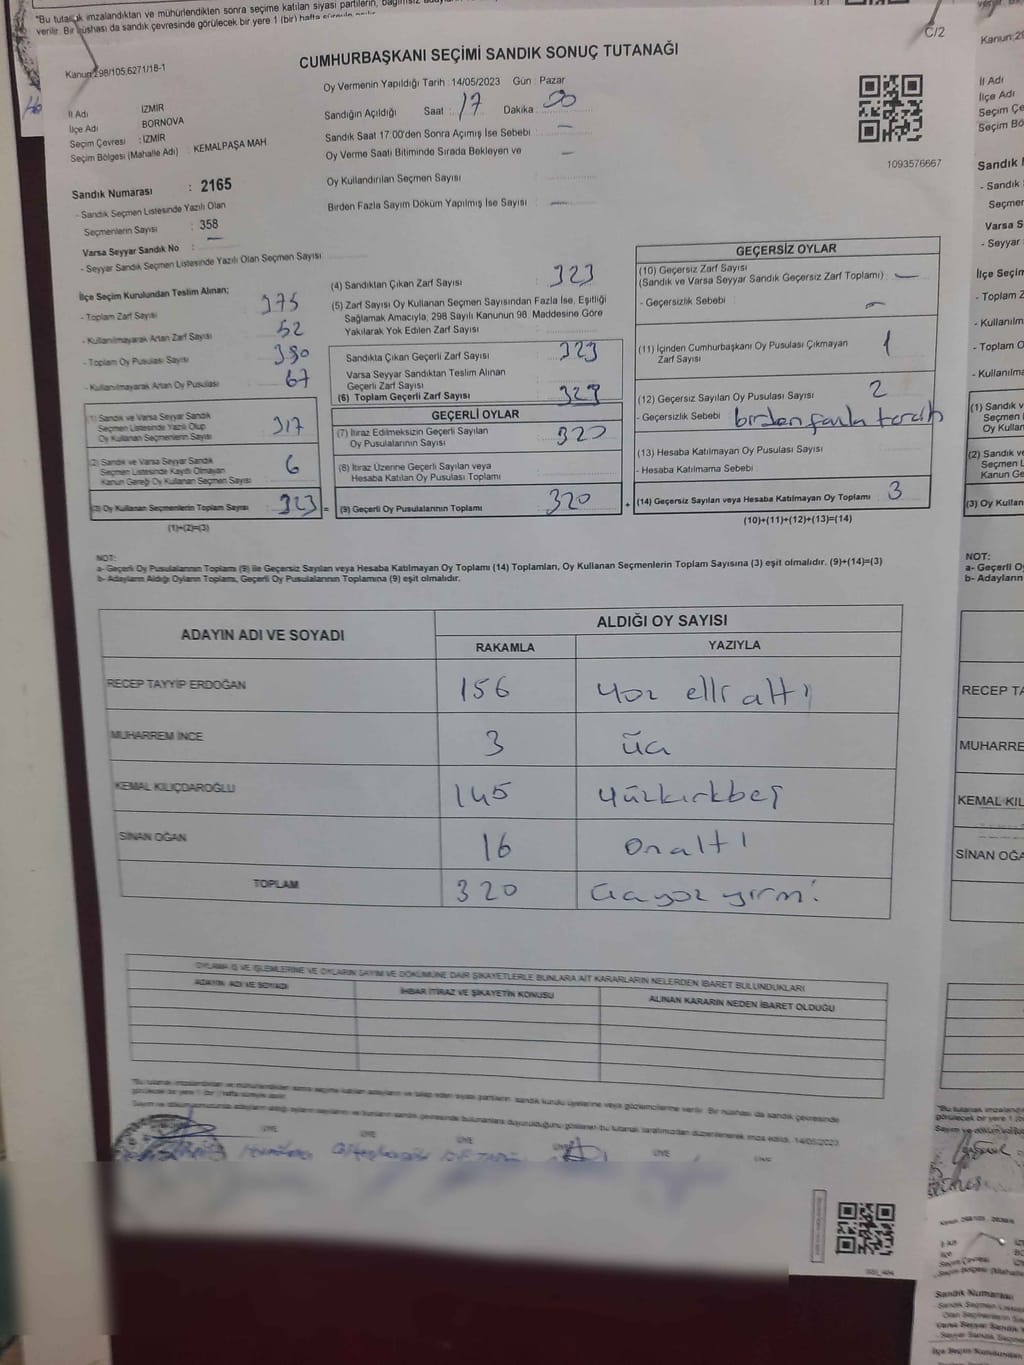 "Bu tutanak imzalandıktan ve mühürlendikten sonra seçime katılan siyasi partilerin,
verilir. Bir nüshası da sandık çevresinde görülecek bir yere 1 (bir) hafta
C/2
Kanun:298/105,6271/18-1
CUMHURBAŞKANI SEÇİMİ SANDIK SONUÇ TUTANAĞI
Oy Vermenin Yapıldığı Tarih :14/05/2023 Gün : Pazar
İl Adı İZMİR
İlçe Adı BORNOVA
Seçim Çevresi : İZMİR
Seçim Bölgesi (Mahalle Adı) : KEMALPAŞA MAH
Sandığın Açıldığı Saat : 17 Dakika : 00
Sandık Saat 17:00'den Sonra Açımış İse Sebebi : —
Oy Verme Saati Bitiminde Sırada Bekleyen ve —
Oy Kullandırılan Seçmen Sayısı
Birden Fazla Sayım Döküm Yapılmış İse Sayısı : —
1093576667
Sandık Numarası : 2165
- Sandık Seçmen Listesinde Yazılı Olan
Seçmenlerin Sayısı : 358
Varsa Seyyar Sandık No : —
- Seyyar Sandık Seçmen Listesinde Yazılı Olan Seçmen Sayısı
İlçe Seçim Kurulundan Teslim Alınan;
- Toplam Zarf Sayısı 375
- Kullanılmayarak Artan Zarf Sayısı 52
- Toplam Oy Pusulası Sayısı 390
- Kullanılmayarak Artan Oy Pusulası 67
(1) Sandık ve Varsa Seyyar Sandık
Seçmen Listesinde Yazılı Olup
Oy Kullanan Seçmenlerin Sayısı 317
(2) Sandık ve Varsa Seyyar Sandık
Seçmen Listesinde Kayıtlı Olmayan
Kanun Gereği Oy Kullanan Seçmen Sayısı 6
(3) Oy Kullanan Seçmenlerin Toplam Sayısı 323 =
(1)+(2)=(3)
(4) Sandıktan Çıkan Zarf Sayısı 323
(5) Zarf Sayısı Oy Kullanan Seçmen Sayısından Fazla İse, Eşitliği
Sağlamak Amacıyla, 298 Sayılı Kanunun 98. Maddesine Göre
Yakılarak Yok Edilen Zarf Sayısı
Sandıkta Çıkan Geçerli Zarf Sayısı 323
Varsa Seyyar Sandıktan Teslim Alınan
Geçerli Zarf Sayısı
(6) Toplam Geçerli Zarf Sayısı 323
GEÇERLİ OYLAR
(7) İtiraz Edilmeksizin Geçerli Sayılan
Oy Pusulalarının Sayısı 320
(8) İtiraz Üzerine Geçerli Sayılan veya
Hesaba Katılan Oy Pusulası Toplamı
(9) Geçerli Oy Pusulalarının Toplamı 320 +
GEÇERSİZ OYLAR
(10) Geçersiz Zarf Sayısı
(Sandık ve Varsa Seyyar Sandık Geçersiz Zarf Toplamı) —
- Geçersizlik Sebebi —
(11) İçinden Cumhurbaşkanı Oy Pusulası Çıkmayan
Zarf Sayısı 1
(12) Geçersiz Sayılan Oy Pusulası Sayısı 2
- Geçersizlik Sebebi : birden fazla tercih
(13) Hesaba Katılmayan Oy Pusulası Sayısı
- Hesaba Katılmama Sebebi
(14) Geçersiz Sayılan veya Hesaba Katılmayan Oy Toplamı 3
(10)+(11)+(12)+(13)=(14)
NOT:
a- Geçerli Oy Pusulalarının Toplamı (9) ile Geçersiz Sayılan veya Hesaba Katılmayan Oy Toplamı (14) Toplamları, Oy Kullanan Seçmenlerin Toplam Sayısına (3) eşit olmalıdır. (9)+(14)=(3)
b- Adayların Aldığı Oyların Toplamı, Geçerli Oy Pusulalarının Toplamına (9) eşit olmalıdır.
ADAYIN ADI VE SOYADI ALDIĞI OY SAYISI
RAKAMLA YAZIYLA
RECEP TAYYİP ERDOĞAN 156 Yüz elli altı
MUHARREM İNCE 3 üç
KEMAL KILIÇDAROĞLU 145 Yüzkırkbeş
SİNAN OĞAN 16 onaltı
TOPLAM 320 üçyüz yirmi
OYLAMA İŞ VE İŞLEMLERİNE VE OYLARIN SAYIM VE DÖKÜMÜNE DAİR ŞİKAYETLERLE BUNLARA AİT KARARLARIN NELERDEN İBARET BULUNDUKLARI
ADAYIN ADI VE SOYADI İHBAR İTİRAZ VE ŞİKAYETİN KONUSU ALINAN KARARIN NEDEN İBARET OLDUĞU
ÜYE ÜYE ÜYE ÜYE ÜYE